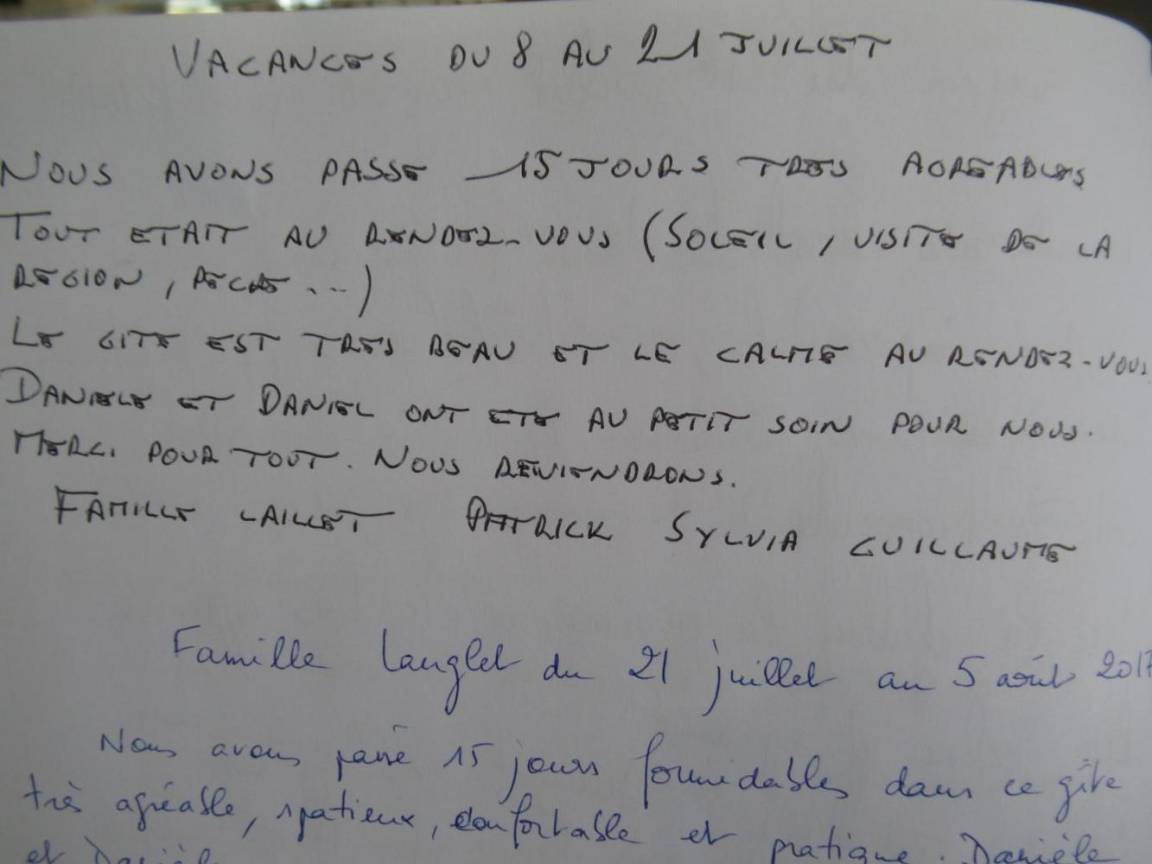 VACANCES DU 8 AU 21 JUILLET
NOUS AVONS PASSE 15 JOURS TRES AGREABLES
TOUT ETAIT AU RENDEZ-VOUS (SOLEIL, VISITE DE LA
REGION, PECHE ...)
LE GITE EST TRES BEAU ET LE CALME AU RENDEZ-VOUS
DANIELE ET DANIEL ONT ETE AU PETIT SOIN POUR NOUS.
MERCI POUR TOUT. NOUS REVIENDRONS.
FAMILLE LAILLET PATRICK SYLVIA GUILLAUME
Famille Langlet du 21 juillet au 5 août 2017
Nous avons passé 15 jours formidables dans ce gîte
très agréable, spatieux, confortable et pratique. Danièle
et